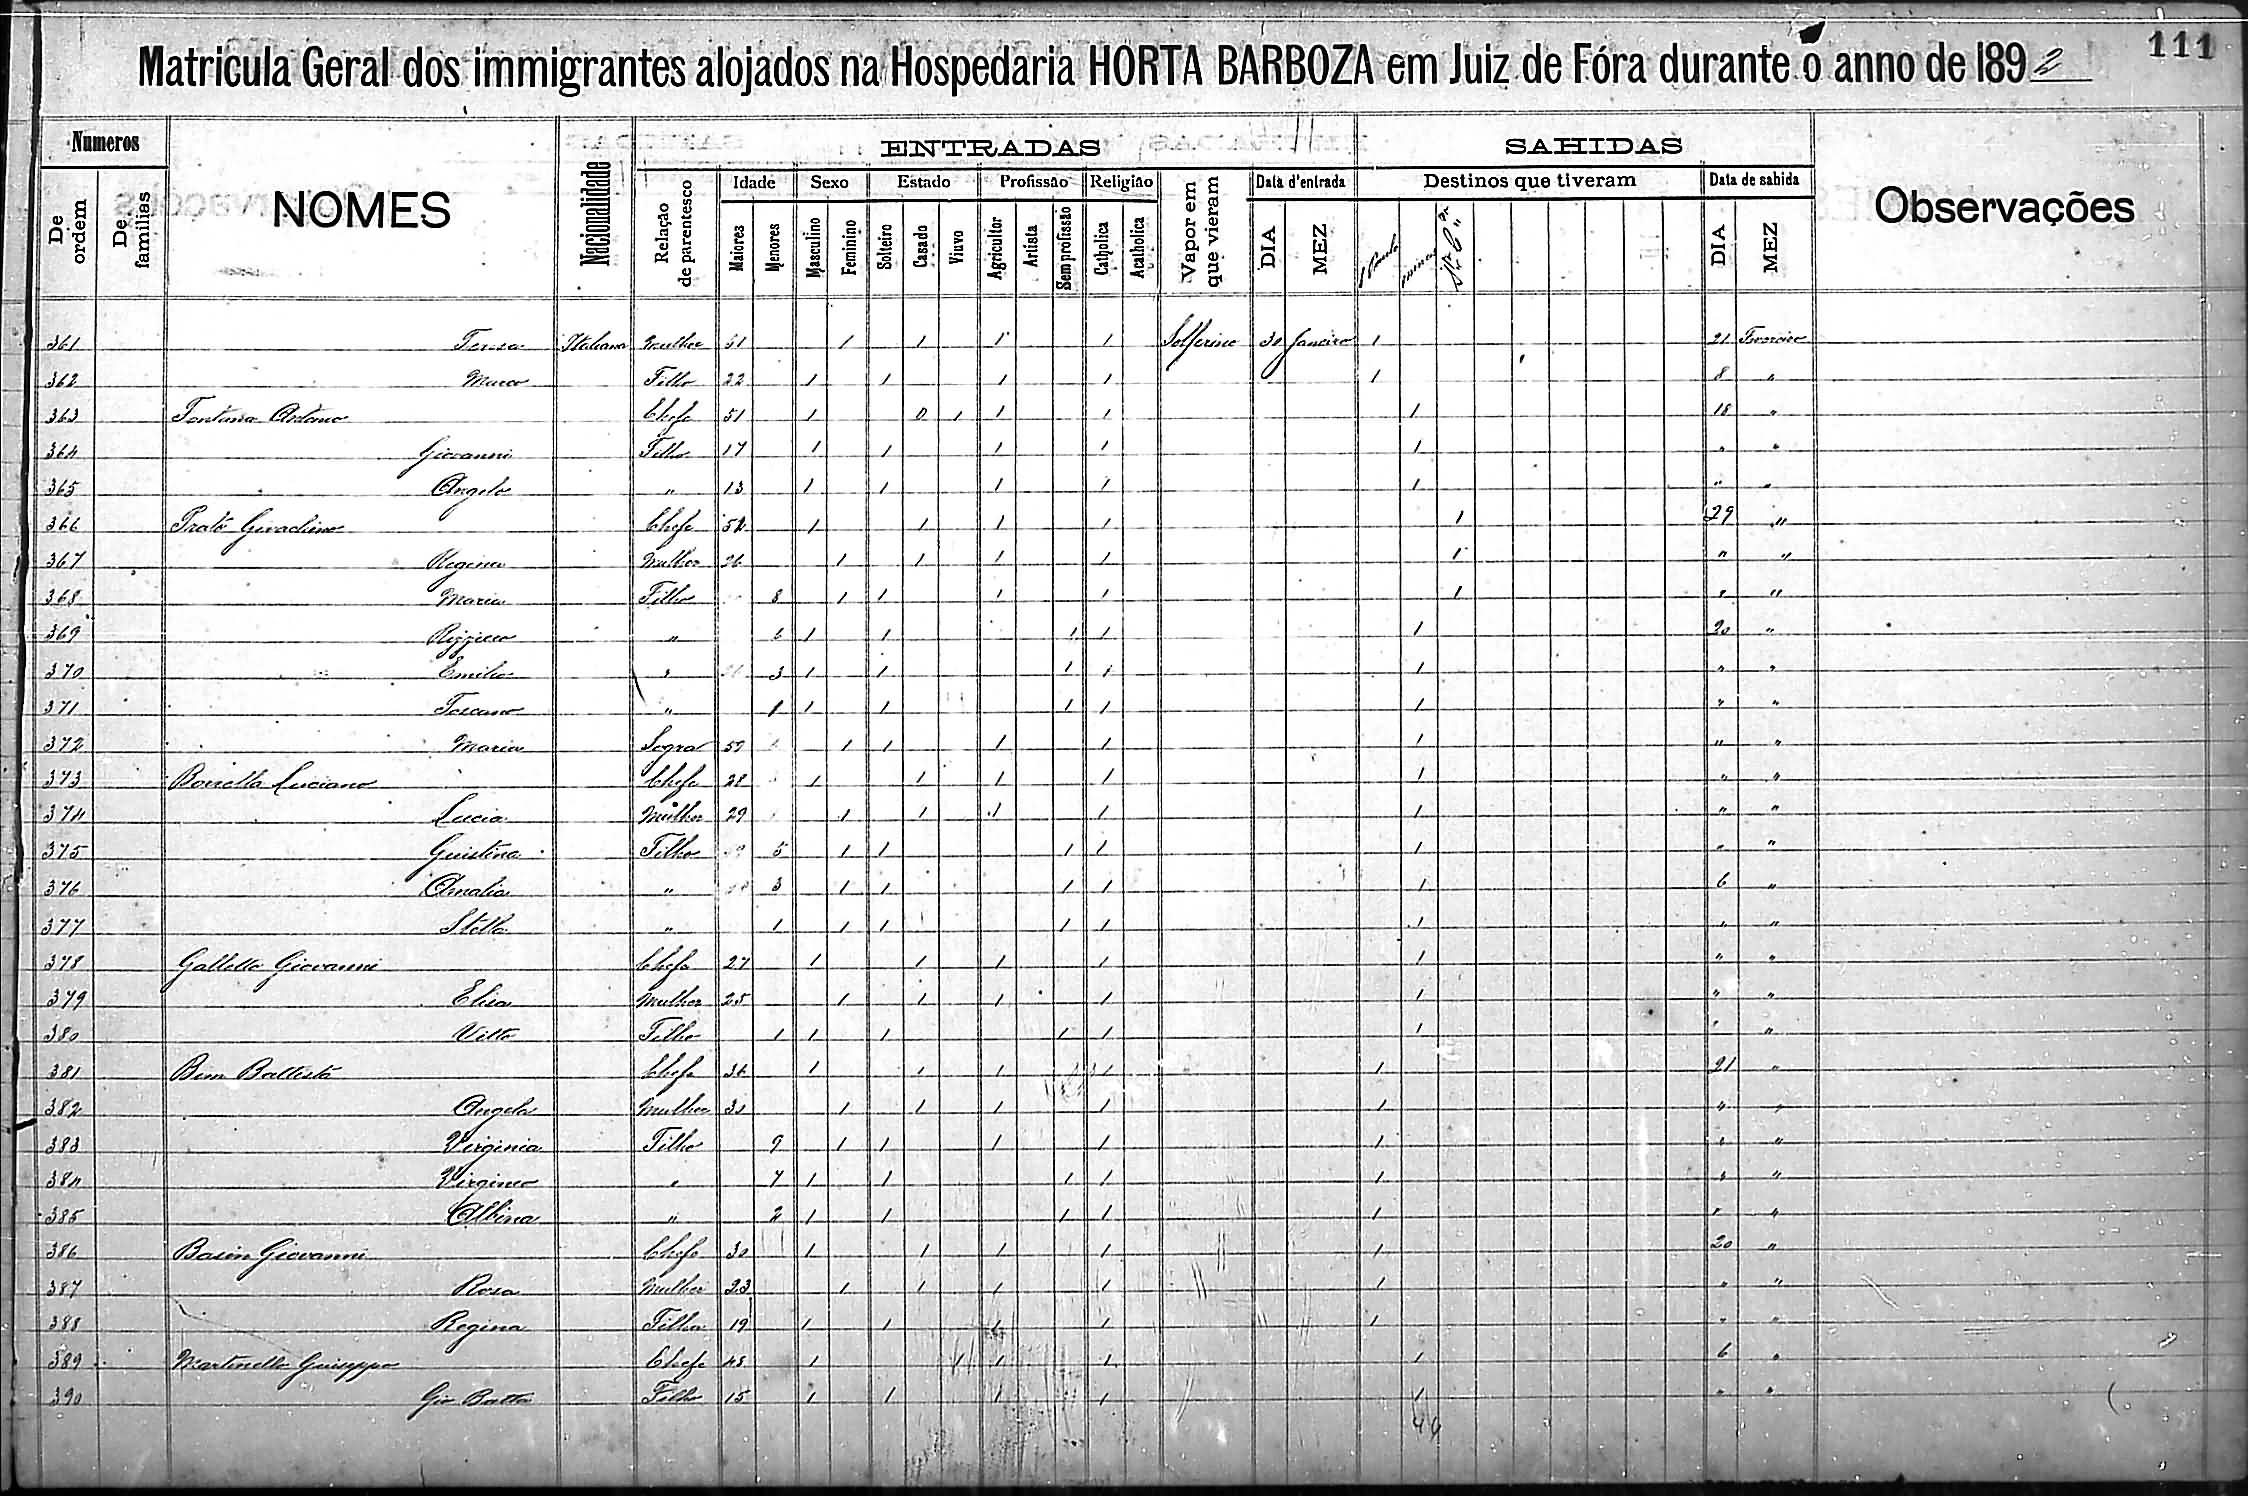 111
Matricula Geral dos immigrantes alojados na Hospedaria HORTA BARBOZA em Juiz de Fóra durante o anno de 1892
Numeros NOMES Nacionalidade ENTRADAS SAHIDAS Observações
De ordem De familias Relação de parentesco Idade Sexo Estado Profissão Religião Vapor em que vieram Data d'entrada Destinos que tiveram Data de sahida
Maiores Menores Masculino Feminino Solteiro Casado Viuvo Agricultor Artista Sem profissão Catholica Acatholica DIA MEZ S Paulo Minas DIA MEZ
361 Italiana Mulher 51 1 1 1 1 Solferino 30 Janeiro 1 21 Fevereiro
362 Marco Filho 22 1 1 1 1 1 8 "
363 Fontana Antonio Chefe 51 1 0 1 1 1 1 18 "
364 Giovanni Filho 17 1 1 1 1 1 " "
365 Angelo " 13 1 1 1 1 1 " "
366 Prato Chefe 52 1 1 1 1 1 29 "
367 Regina Mulher 26 1 1 1 1 1 " "
368 Maria Filho 8 1 1 1 1 1 " "
369 " 6 1 1 1 1 1 20 "
370 Emilio " 3 1 1 1 1 1 " "
371 Toscano " 1 1 1 1 1 1 " "
372 Maria Sogra 1 1 1 1 1 " "
373 Luciano Chefe 28 1 1 1 1 1 " "
374 Lucia Mulher 29 1 1 1 1 1 " "
375 Guistina Filho 5 1 1 1 1 1 " "
376 Amalia " 3 1 1 1 1 1 6 "
377 Stella " 1 1 1 1 1 1 " "
378 Galletto Giovanni Chefe 27 1 1 1 1 1 " "
379 Elisa Mulher 25 1 1 1 1 1 " "
380 Filho 1 1 1 1 1 1 " "
381 Battista Chefe 36 1 1 1 1 1 21 "
382 Angela Mulher 30 1 1 1 1 1 " "
383 Virginia Filho 9 1 1 1 1 1 " "
384 Virginio " 7 1 1 1 1 1 " "
385 Albina " 2 1 1 1 1 1 " "
386 Giovanni Chefe 30 1 1 1 1 1 20 "
387 Rosa Mulher 23 1 1 1 1 1 " "
388 Regina Filha 19 1 1 1 1 1 " "
389 Martinello Guiseppe Chefe 48 1 1 1 1 1 6 "
390 Gio Batta Filho 15 1 1 1 1 1 " "